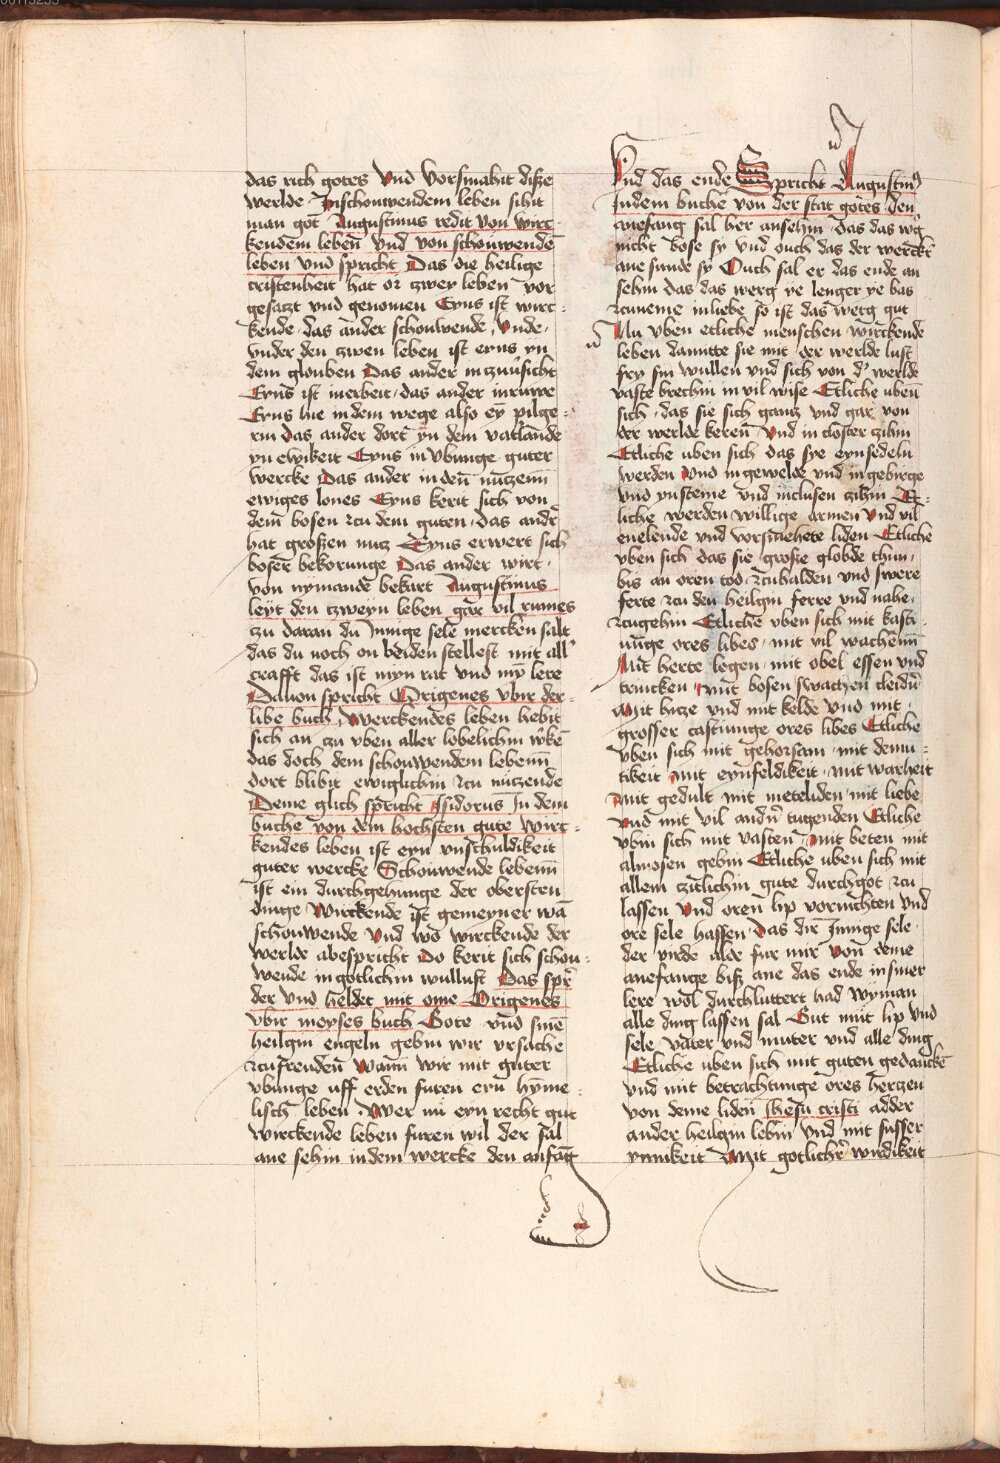 das rich gotes Und vorsmahit disze
werlde Inschouwendem leben sihit
man got Augustinus redit von wirc-
kendem lebeñ und von schouwendē
leben und spricht Das die heilige
cristenheit hat or zwey leben vor
gesatzt und genomen Eyns ist wirc-
kende das ander schouwende Unde
under den zwen leben ist eyns yn
dem glouben Das ander in zuusicht
Eyns ist inerbeit das ander inruwe
Eyns hie in dem wege also ey pilge-
rin das ander dort yn dem vatlande
yn ewikeit Eyns in ubunge guter
wercke Das ander in den nutzenn
ewiges lones Eyns kerit sich von
dem bosen zcu dem guten das andr
hat groszen nutz Eyns erwert sich
boser bekorunge Das ander wirt
von nymande bekart Augustinus
leyt den zweyn leben gar vil rumes
zu daran du Innige sele mercken salt
das du noch on beiden stellest mit all
crafft das ist myn rat und my lere
Davon spricht Origenes ubir der
libe buch Werckendes leben hebit
sich an zu uben aller lobelichin wke
das doch dem schouwendem lebenn
dort blibit ewiglichin zcu nutzende
Deme glich spricht Isidorus In dem
buche von dem hochsten gute Wirc-
kendes leben ist eyn unschuldikeit
guter wercke Schouwende lebenn
ist ein durchgehunge der obersten
dinge Wirckende ist gemeyner wā
schouwende Und wo wirckende der
werlde abespricht Do kerit sich schou-
wende in gotlichin wullust Das spr
der und heldet mit ome Origenes
ubir moyses buch Gote und sine
heilgin engeln gebin wir ursache
zcufrenden Wann wir mit guter
ubunge uff erden furen eyn hyme-
lisch leben Wer nu eyn recht gut
wirckende leben furen wil der sal
ane sehin in dem wercke den anfāg
Und das ende Spricht Augustin
Indem buche von der stat gotes den
anefang sal her ansehin das das wg
nicht bose sy und ouch das der werckr
ane sunde sy Ouch sal er das ende an
sehin das das werg ye lenger ye bas
zcuneme inliebe so ist das werg gut
Nu uben etliche menschen wirckende
leben damitte sie mit der werlde lust
fry sin wullen und sich von d werlde
vaste brechin in vil wise Etliche uben
sich das sie sich gantz und gar von
der werlde keren Und in closter zihin
Etliche uben sich das sye eynsedeln
werden Und in gewelde und in gebirge
und ynsteine und inclusen zihin Et-
liche werden willige armen Und vil
enelende und vorsmehete liden Etliche
uben sich das sie grosze globde thun
bis an oren tod zcuhalden und swere
ferte zcu den heilgin ferre und nahe
zcugehin Etliche uben sich mit kasti-
unge ores libes mit vil wachenn
Mit herte legen mit obel essen und
trincken mit bosen swachen cleidn
Mit hitze und mit kelde und mit
grosser castiunge ores libes Etliche
uben sich mit gehorsam mit demu-
tikeit mit eynfeldikeit mit warheit
Mit gedult mit meteliden mit liebe
Und mit vil andn tugenden Etliche
ubin sich mit vasten mit beten mit
almosen gebin Etliche uben sich mit
allem zitlichin gute durchgot zcu
lassen Und oren lip vornichten und
ore sele hassen Das dir Innige sele
der orde alde fur mir von deme
anefange bisz ane das ende in siner
lere wol durchluttert had Wyman
alle ding lassen sal Gut mut lip und
sele vater und muter und alle ding
Etliche uben sich mit guten gedancke
und mit betrachtunge ores hertzen
von deme liden Ihesu cristi adder
ander heilgin lebin Und mit susser
ynnikeit Mit gotlichr wirdikeit